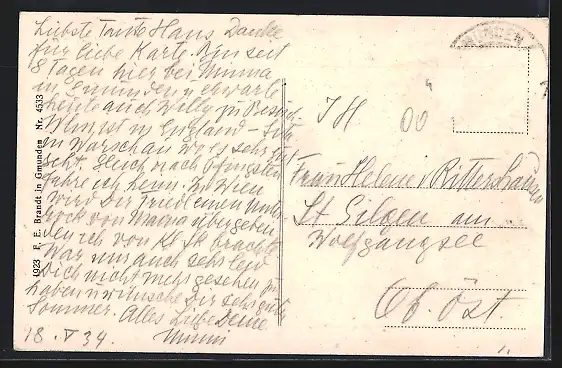 Liebste Tante Hans Danke
für liebe Karte. Bin seit
8 Tagen hier bei Mama
in Gmunden u erwarte
heute auch Willy zu Besuch
ist in England
in Warschau wo es sehr gut
geht. Gleich nach Pfingsten
fahre ich heim. In Wien
wird Dir Friedl einen Unter-
rock von Mama übergeben
den ich von brachte
War mir auch sehr leid
Dich nicht mehr gesehen zu
haben u wünsche Dir sehr guten
Sommer. Alles Liebe Deine
Mimi
18. V 34.
1923 F. E. Brandt in Gmunden Nr. 4533
GMUNDEN
IH 00
Frau Helene
St Gilgen am
Wolfgangsee
Ob. Öst